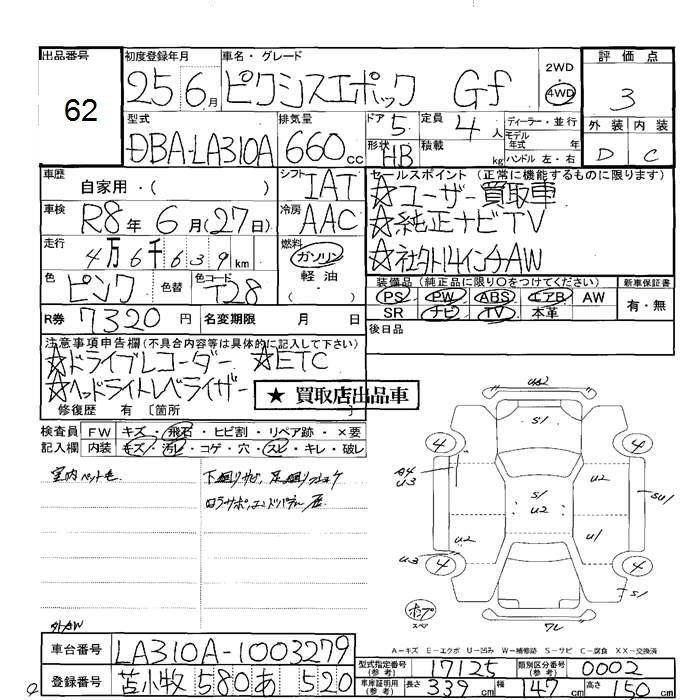 出品番号 62
初度登録年月 25 6月
車名・グレード ピクシスエポック Gf
2WD 4WD
評価点 3
外装 D 内装 C
型式 DBA-LA310A
排気量 660cc
ドア 5 定員 4人
形状 HB 積載 kg
ディーラー・並行
モデル年式 年式
ハンドル 左・右
車歴 自家用・( )
シフト IAT
セールスポイント (正常に機能するものに限ります)
☆ユーザー買取車
☆純正ナビTV
☆社外14インチAW
車検 R8年6月(27日)
冷房 AAC
走行 4万6千639km
燃料 ガソリン・軽油・( )
色 ピンク 色替 色コード T28
装備品 (純正品に限り○をつけてください)
PS PW ABS エアB AW
SR ナビ TV 本革
新車保証書 有・無
R券 7320円 名変期限 月 日
後日品
注意事項申告欄(不具合内容等は具体的に記入して下さい)
☆ドライブレコーダー ☆ETC
☆ヘッドライトレベライザー
★ 買取店出品車
修復歴 有 〔箇所
検査員記入欄
FW キズ・飛石・ヒビ割・リペア跡・×要
内装 キズ・汚レ・コゲ・穴・スレ・キレ・破レ
室内ペット毛
下廻りサビ、足廻り
外AW
U2 S1
4 4
A4 U3
S1 U2
U2
SU1
U2 U1
U3 4 4
S1
ホップ スペ
ワレ
A-キズ E-エクボ U-凹み W-補修跡 S-サビ C-腐食 XX-交換済
車台番号 LA310A-1003279
登録番号 苫小牧 580 あ 520
型式指定番号(参考) 17125 類別区分番号(参考) 0002
車庫証明用(参考) 長さ 339cm 幅 147cm 高さ 150cm